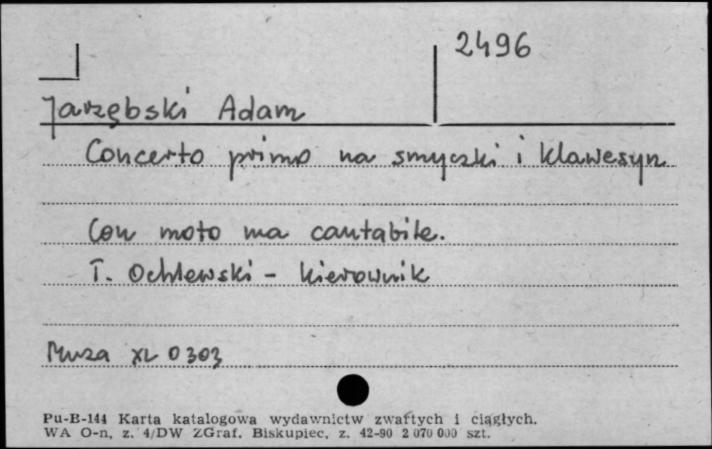 2496
Jarzębski Adam
Concerto primo na smyczki i klawesyn
Con moto ma cantabile.
T. Ochlewski - kierownik
Muza XL 0303
Pu-B-144 Karta katalogowa wydawnictw zwartych i ciągłych.
WA O-n, z. 4/DW ZGraf. Biskupiec, z. 42-90 2 070 000 szt.